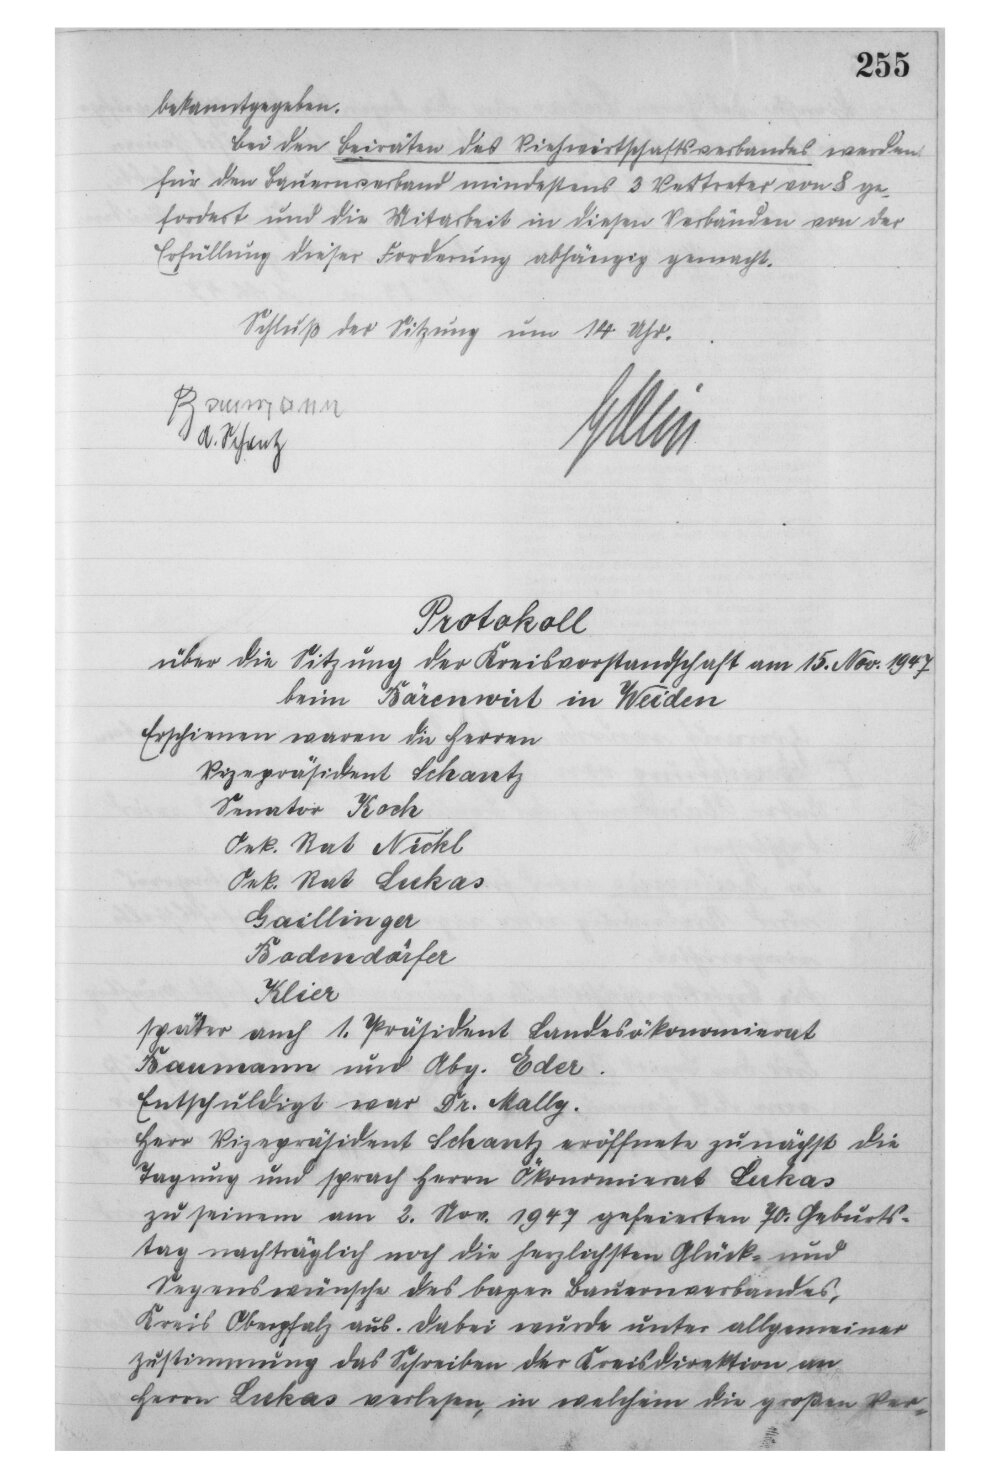 255
bekanntgegeben.
Bei den Beiräten des Viehwirtschaftsverbandes werden
für den Bauernverband mindestens 3 Vertreter von 8 ge-
fordert und die Mitarbeit in diesen Verbänden von der
Erfüllung dieser Forderung abhängig gemacht.
Schluß der Sitzung um 14 Uhr.
Baumann
A. Schantz
Protokoll
über die Sitzung der Kreisvorstandschaft am 15. Nov. 1947
beim Bärenwirt in Weiden
Erschienen waren die Herren
Vizepräsident Schantz
Senator Koch
Oek. Rat Nickl
Oek. Rat Lukas
Gaillinger
Bodendörfer
Klier
später auch 1. Präsident Landesökonomierat
Baumann und Abg. Eder.
Entschuldigt war Dr. Mally.
Herr Vizepräsident Schantz eröffnete zunächst die
Tagung und sprach Herrn Ökonomierat Lukas
zu seinem am 2. Nov. 1947 gefeierten 70. Geburts-
tag nachträglich noch die herzlichsten Glück- und
Segenswünsche des bayer. Bauernverbandes,
Kreis Oberpfalz aus. Dabei wurde unter allgemeiner
Zustimmung das Schreiben der Kreisdirektion an
Herrn Lukas verlesen, in welchem die großen Ver-